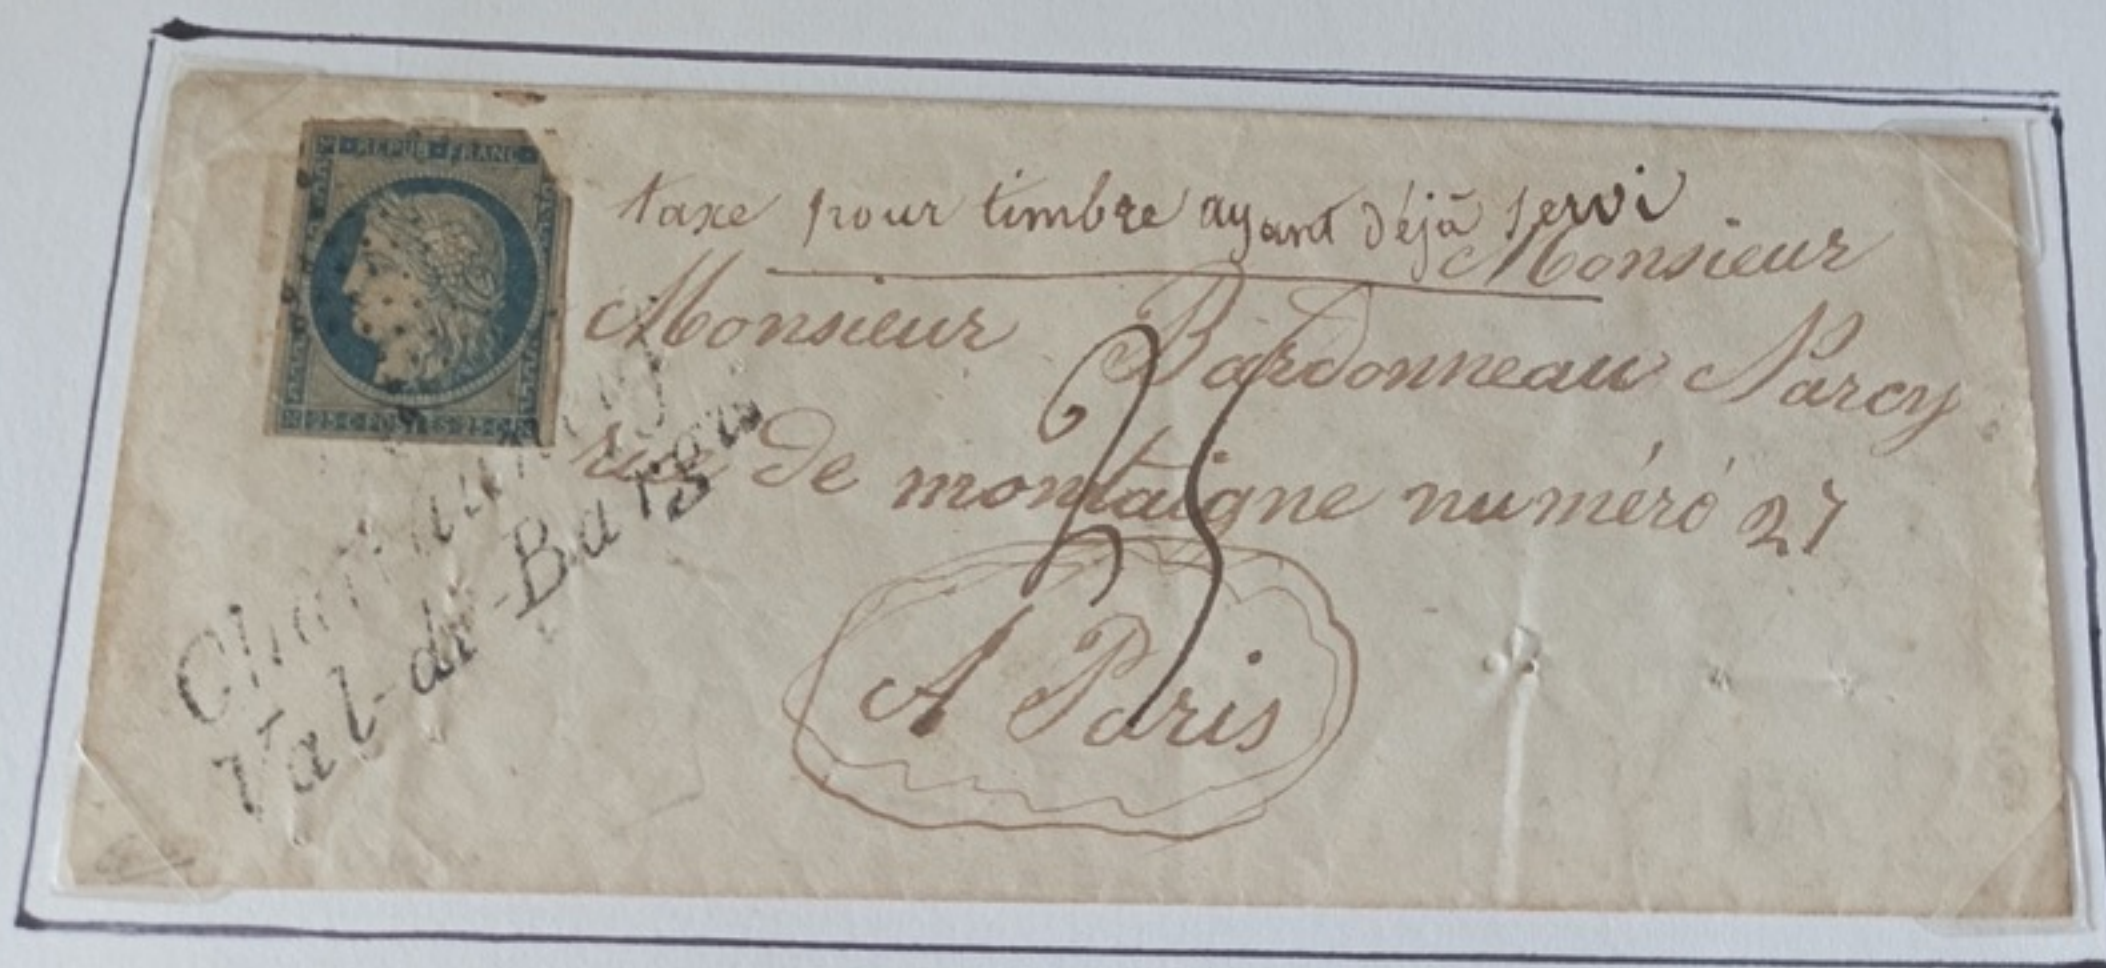 REPUB FRANC
25 C POSTES 25 C
taxe pour timbre ayant déjà servi
Monsieur
Monsieur Bardonneau Narcy
rue de montaigne numéró 27
25
A Paris
Val-de-Bargis